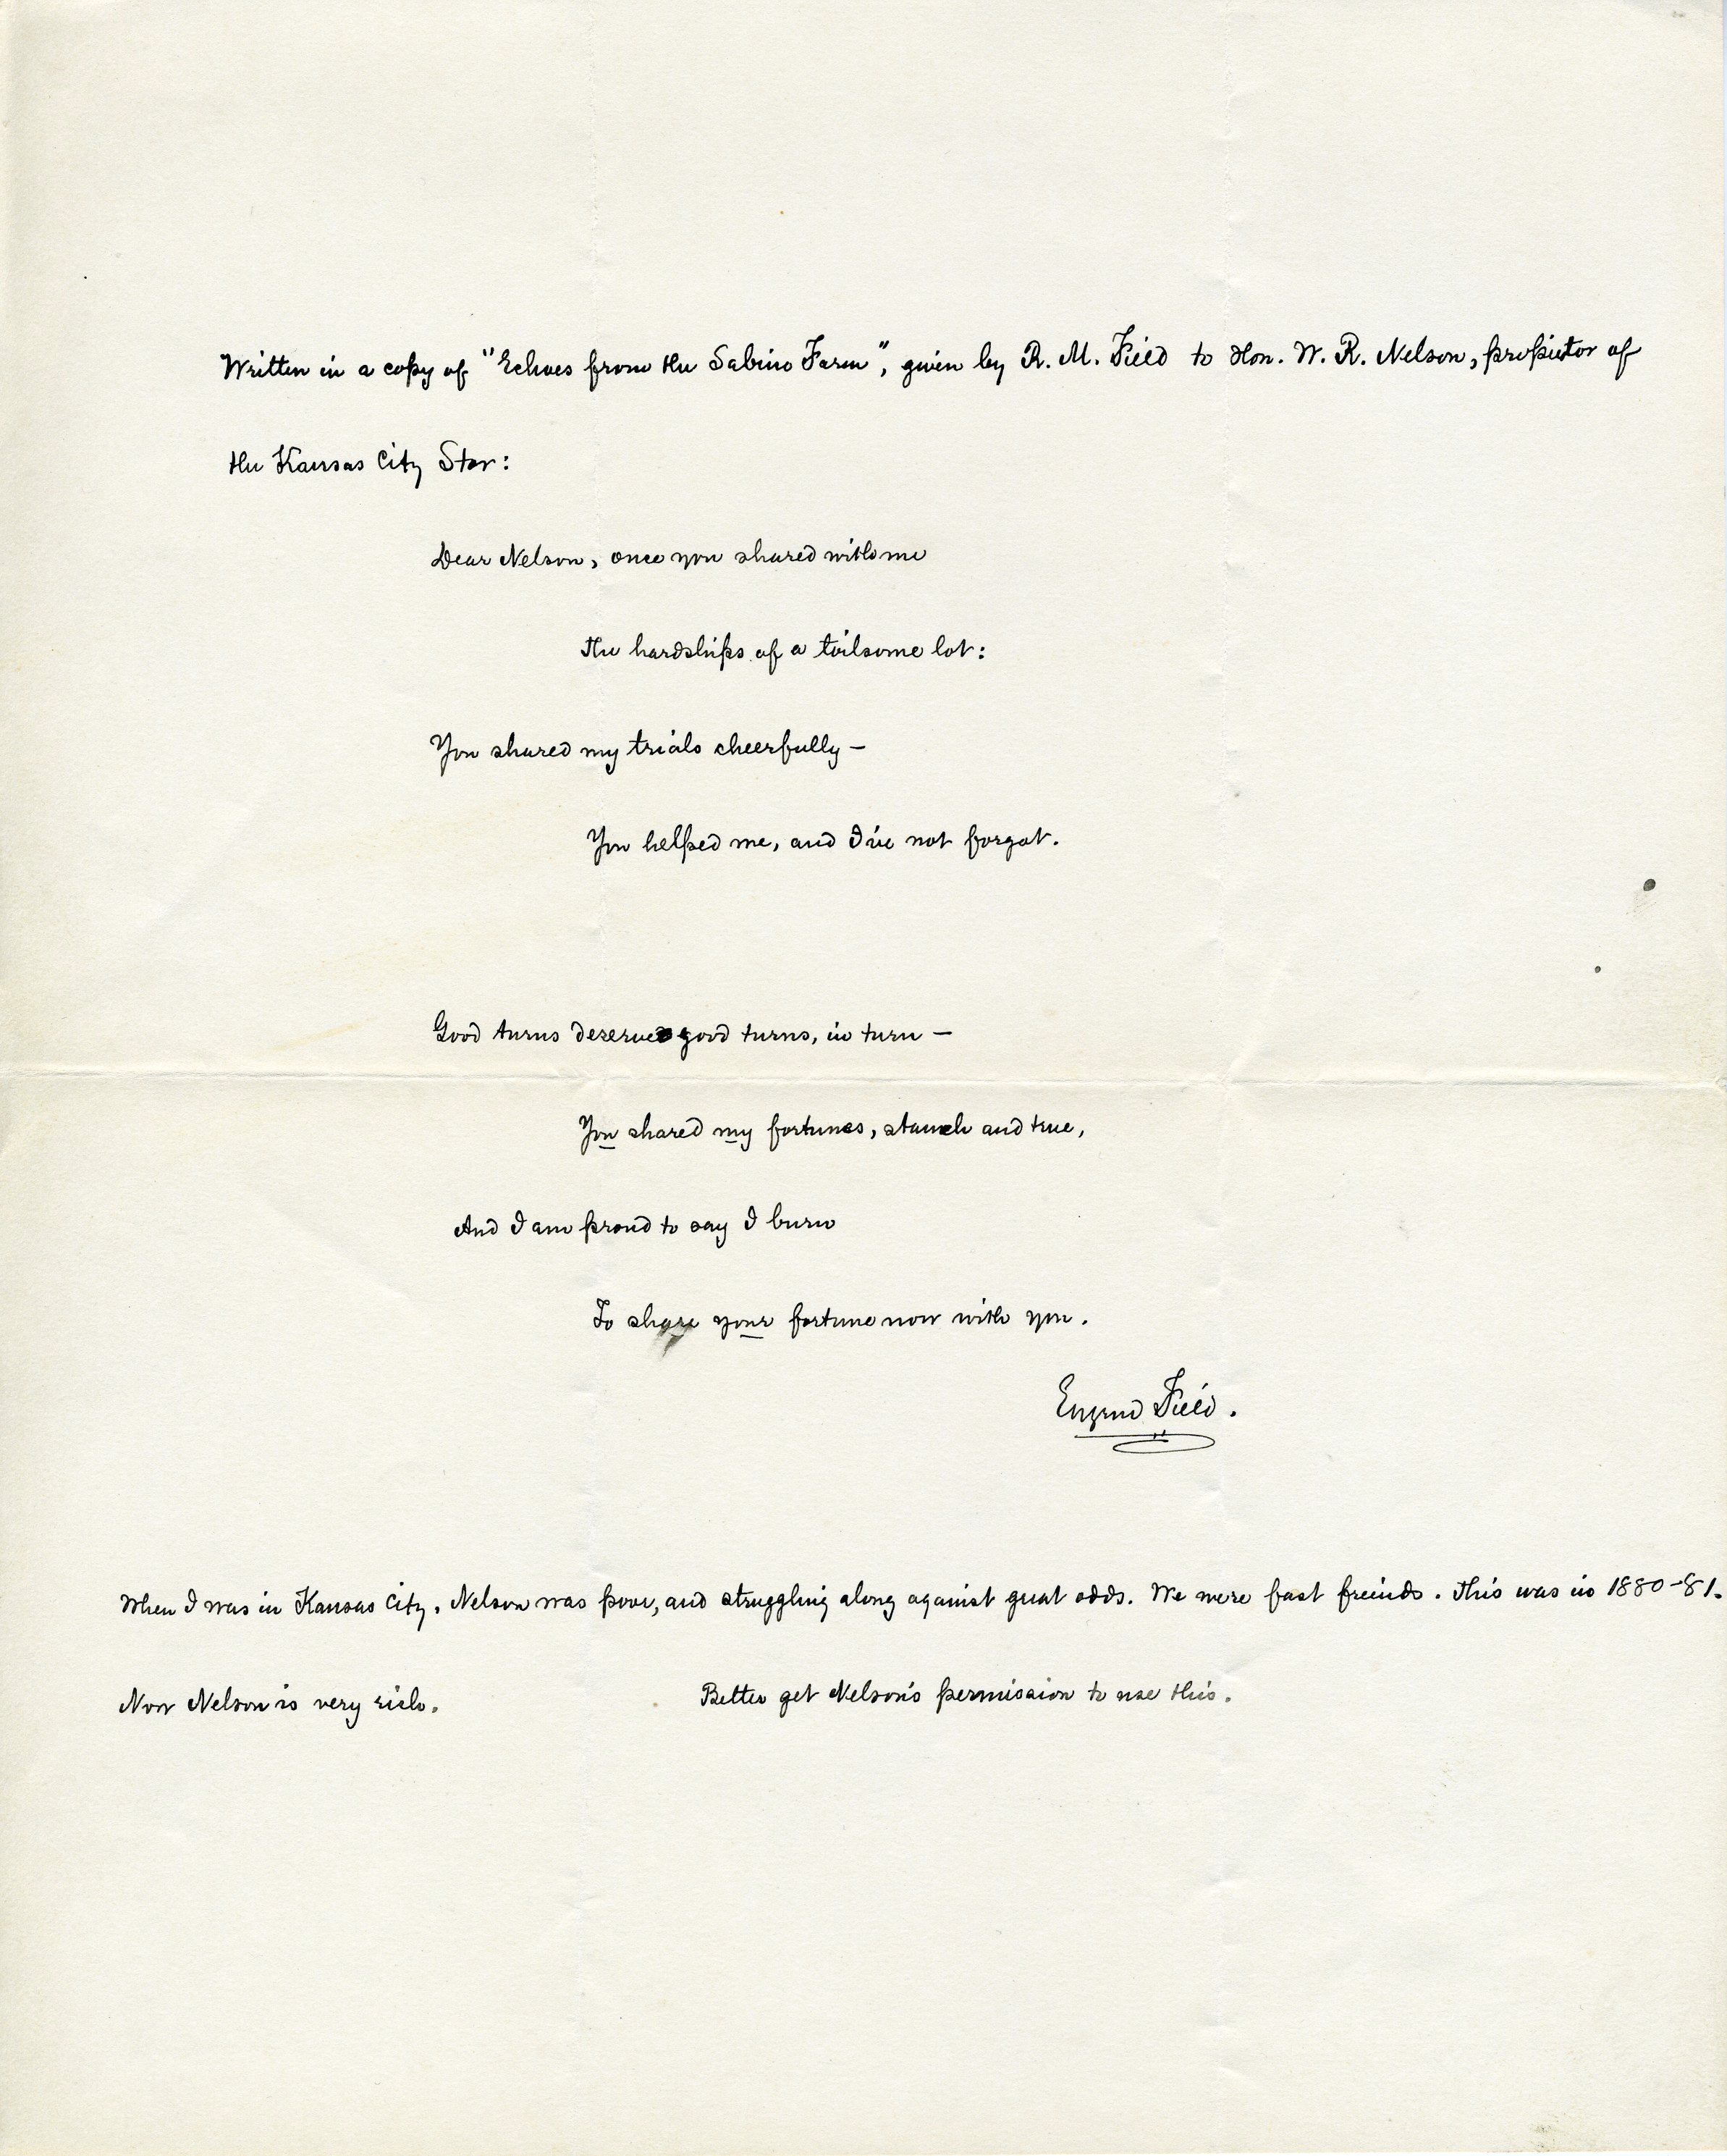 Written in a copy of "Echoes from the Sabine Farm", given by R. M. Field to Hon. W. R. Nelson, proprietor of
the Kansas City Star:
Dear Nelson, once you shared with me
The hardships of a toilsome lot:
You shared my trials cheerfully –
You helped me, and I've not forgot.
Good turns deserve good turns, in turn –
You shared my fortunes, staunch and true,
And I am proud to say I burn
To share your fortune now with you.
Eugene Field.
When I was in Kansas City, Nelson was poor, and struggling along against great odds. We were fast freinds. This was in 1880-81.
Now Nelson is very rich. Better get Nelson's permission to use this.